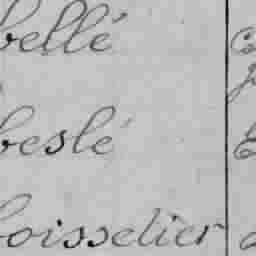 bellé
beslé
boisselier